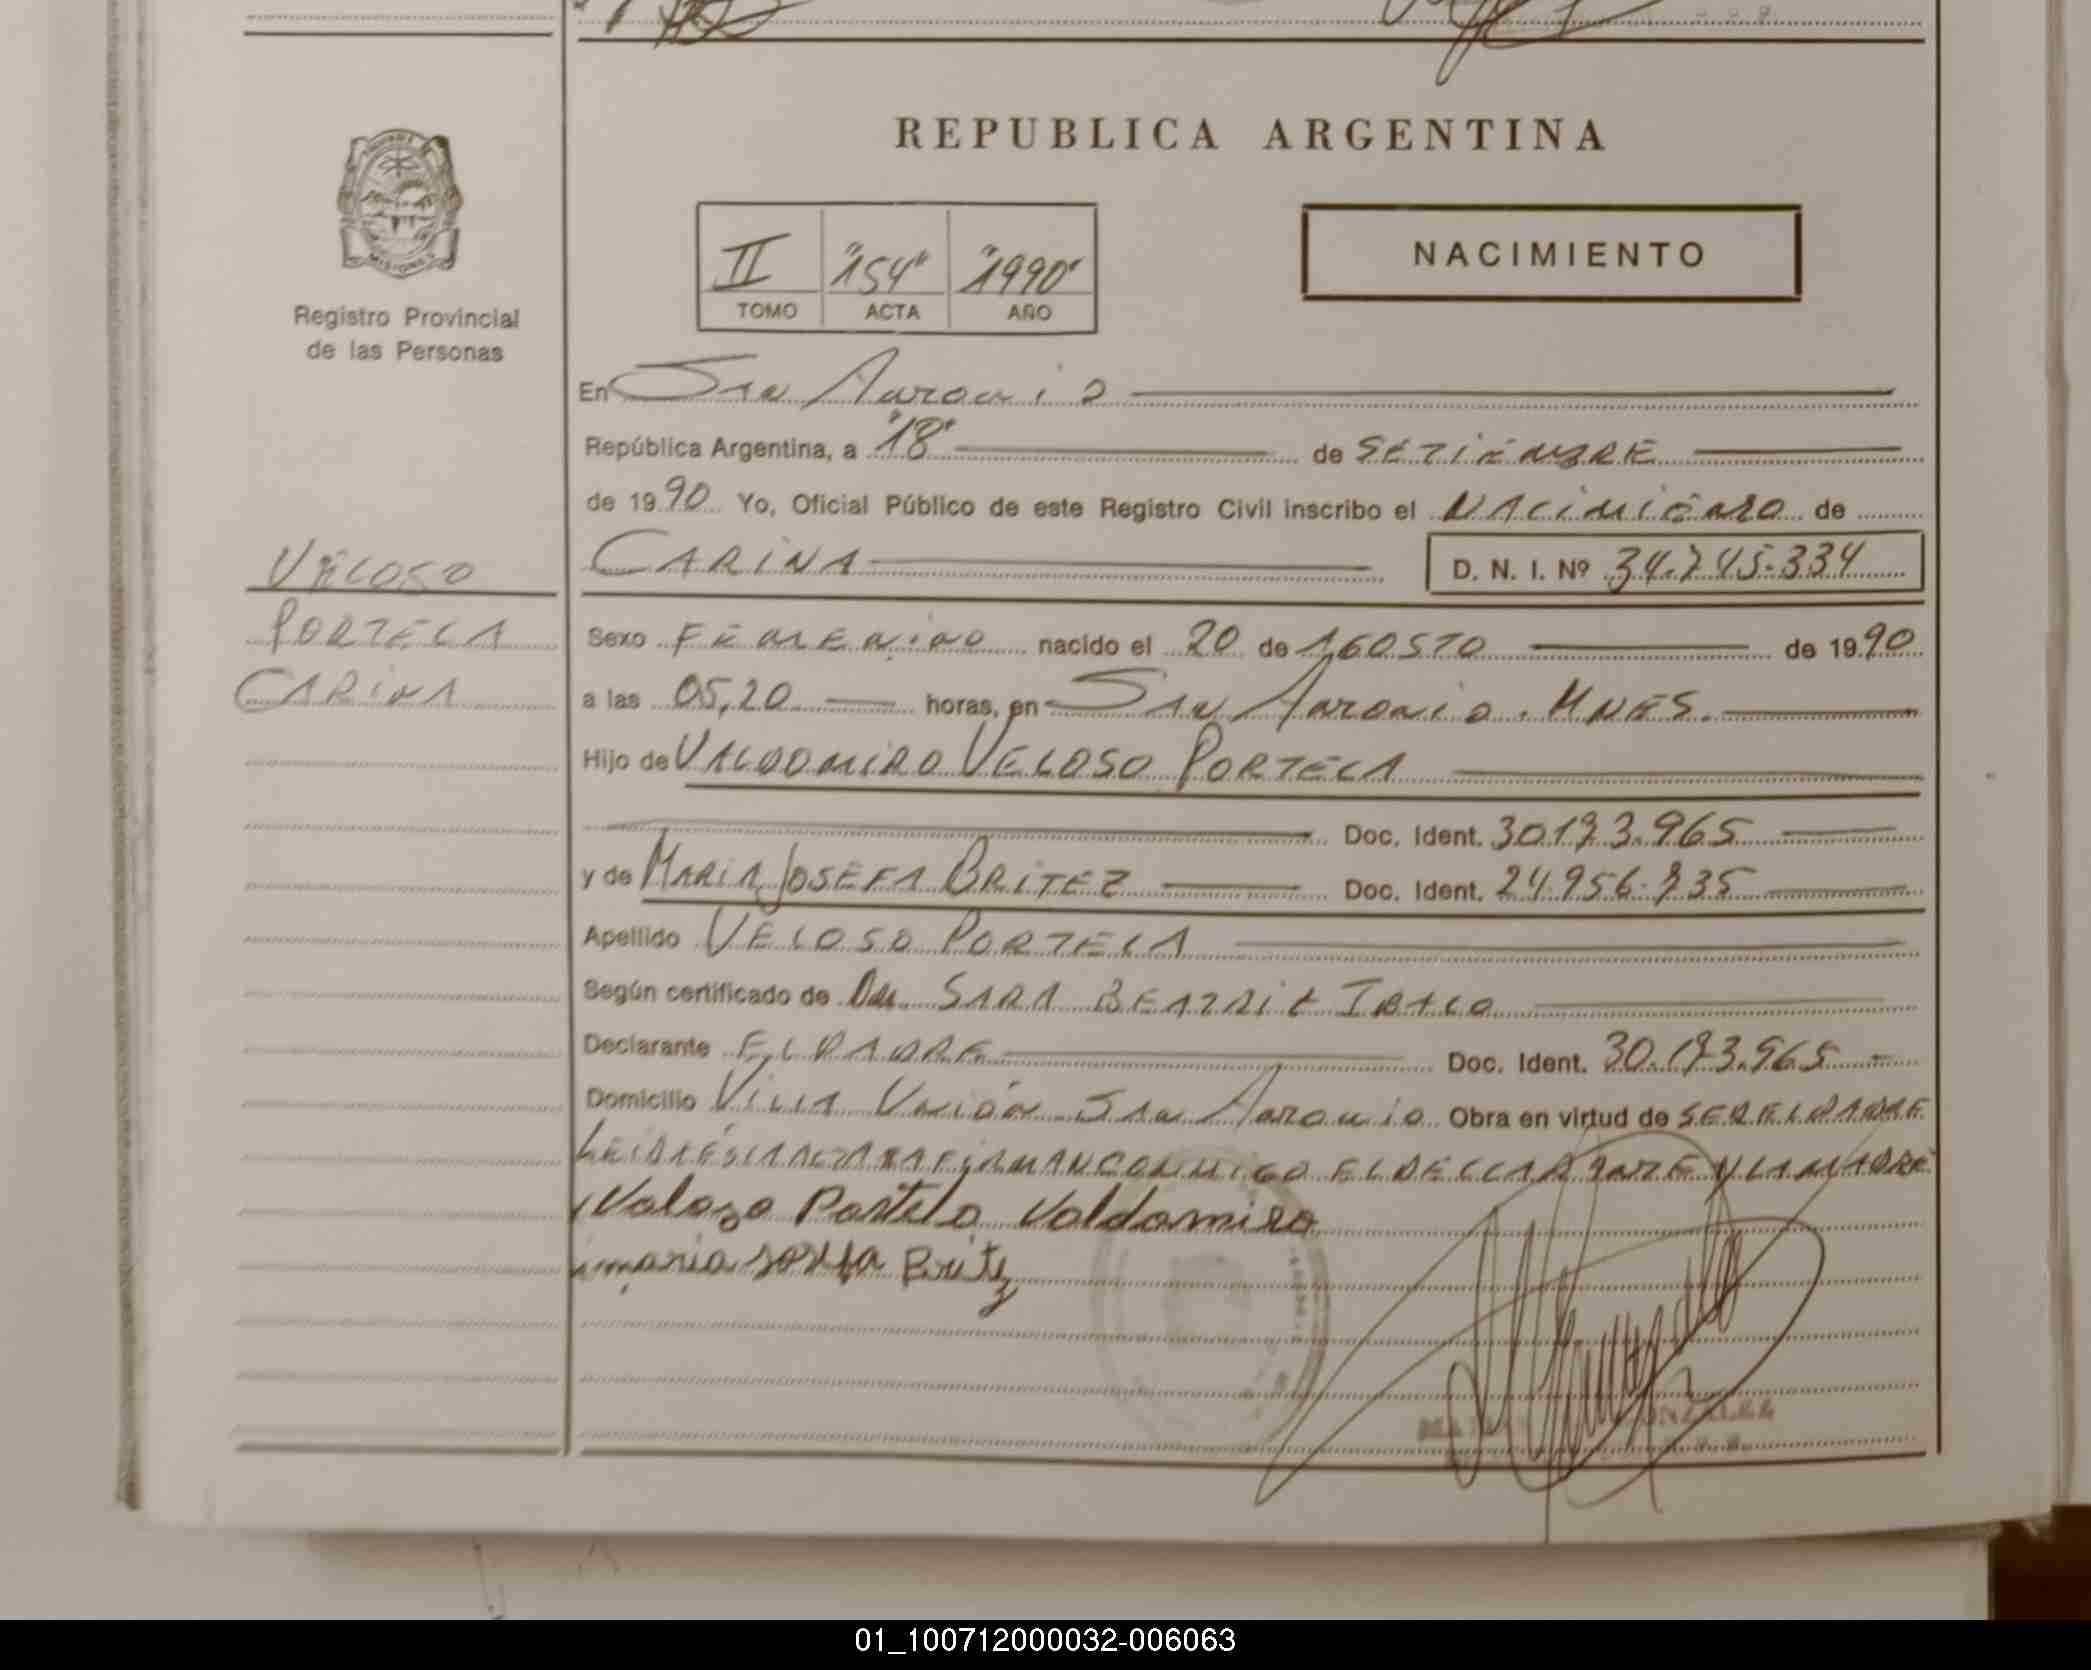 REPUBLICA ARGENTINA
NACIMIENTO
II "154" "1990"
TOMO ACTA AÑO
MISIONES
Registro Provincial
de las Personas
En San Antonio
República Argentina, a "18" de SETIEMBRE
de 1990 Yo, Oficial Público de este Registro Civil inscribo el NACIMIENTO de
VELOSO
PORTELA
CARINA
CARINA D. N. I. Nº 34.745.334
Sexo FEMENINO nacido el 20 de AGOSTO de 1990
a las 05,20 horas, en San Antonio. MNES.
Hijo de VALDOMIRO VELOSO PORTELA
Doc. Ident. 30.173.965
y de MARIA JOSEFA BRITEZ Doc. Ident. 24.956.735
Apellido VELOSO PORTELA
Según certificado de Dra SARA BEATRIZ
Declarante EL PADRE Doc. Ident. 30.173.965
Domicilio Villa Unión San Antonio Obra en virtud de SER EL PADRE
LEIDA ESTA ACTA LA FIRMAN CONMIGO EL DECLARANTE Y LA MADRE
Valoso Portela Valdomiro
maria Britez
01_100712000032-006063